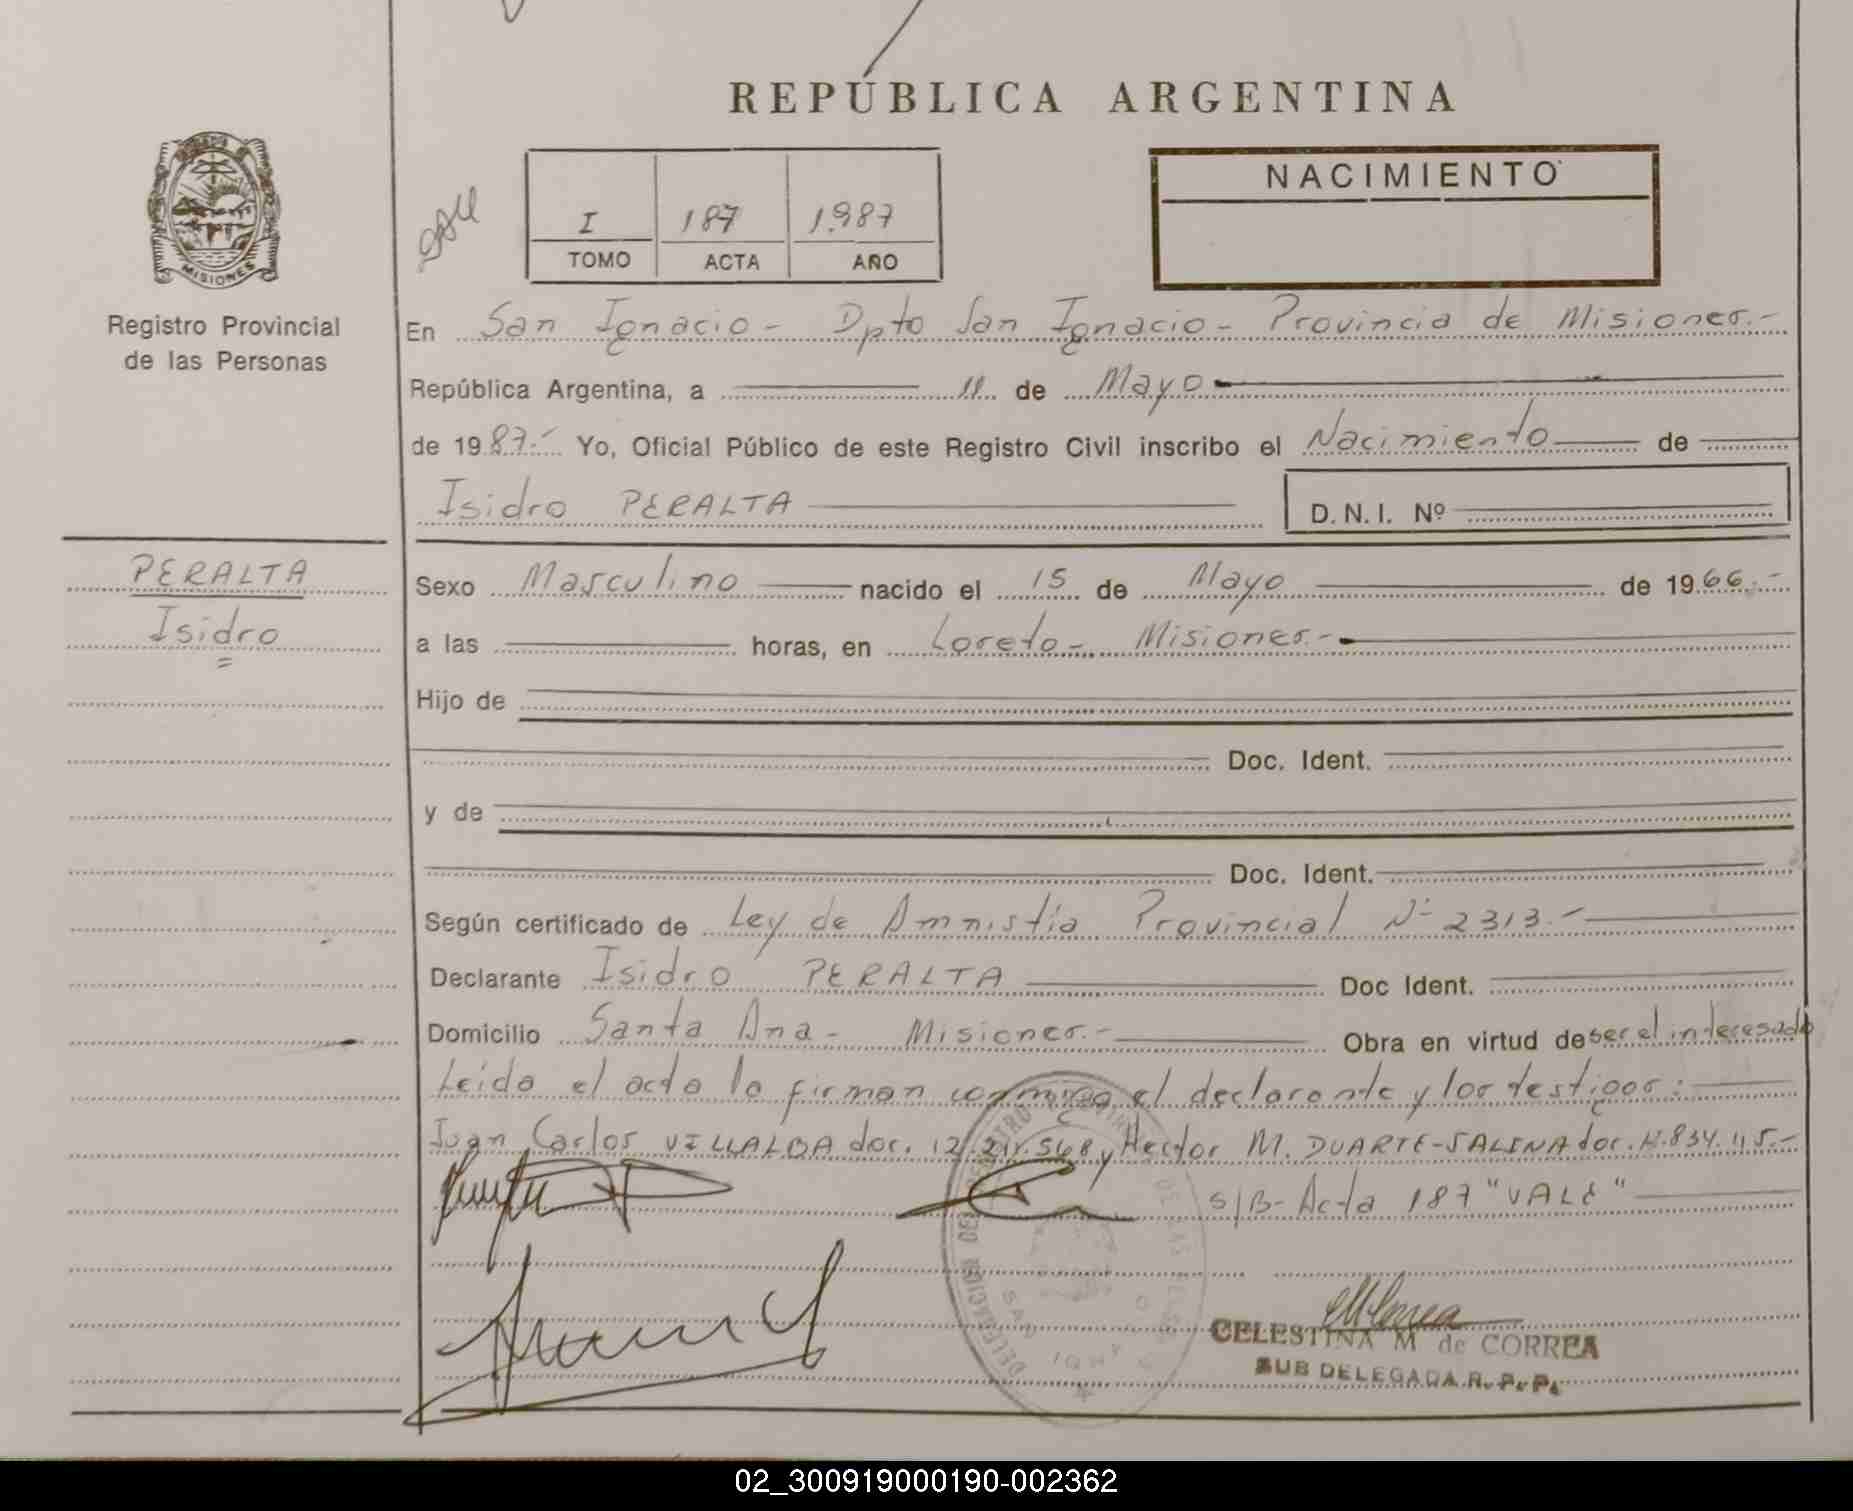 REPÚBLICA ARGENTINA
MISIONES
Registro Provincial
de las Personas
I 187 1.987
TOMO ACTA AÑO
NACIMIENTO
En San Ignacio - Dpto San Ignacio - Provincia de Misiones.-
República Argentina, a 11 de Mayo
de 1987.- Yo, Oficial Público de este Registro Civil inscribo el Nacimiento de
Isidro PERALTA
D. N. I. Nº
PERALTA
Isidro
Sexo Masculino nacido el 15 de Mayo de 1966.-
a las horas, en Loreto - Misiones.-
Hijo de
Doc. Ident.
y de
Doc. Ident.
Según certificado de Ley de Amnistía Provincial Nº 2313.-
Declarante Isidro PERALTA Doc Ident.
Domicilio Santa Ana - Misiones.- Obra en virtud de ser el interesado
Leída el acta la firman conmigo el declarante y los testigos:
Juan Carlos VILLALBA doc. y Hector M. DUARTE-SALINA doc.
S/B- Acta 187 "VALE"
DELEGACION DEL REGISTRO
SAN IGNACIO
CELESTINA M de CORREA
SUB DELEGADA R. P. P.
02_300919000190-002362